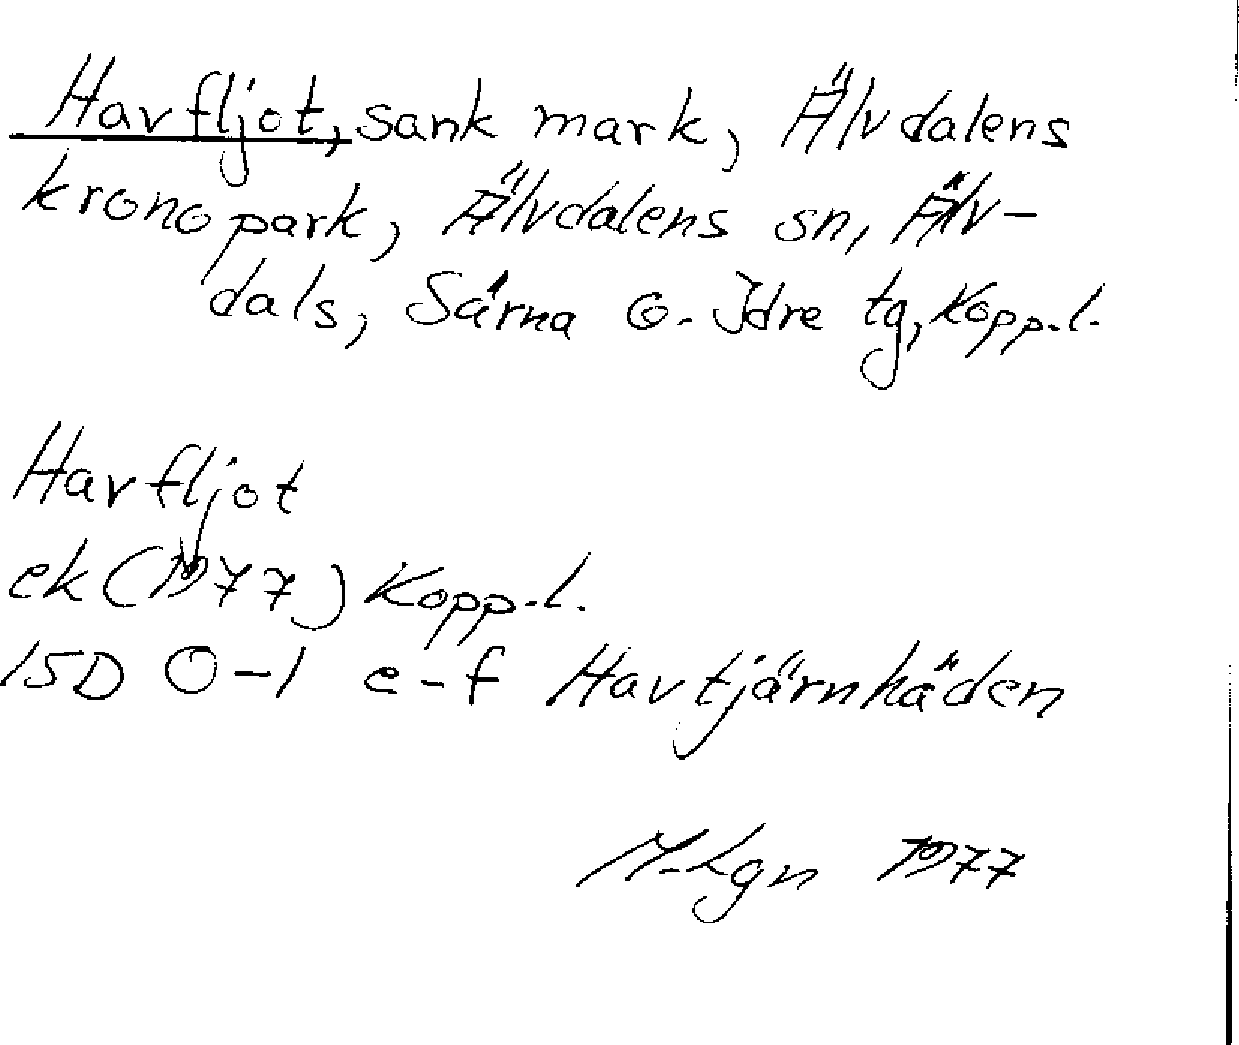 Havfljot, sank mark, Älvdalens
kronopark, Älvdalens sn, Älv-
dals, Särna o. Idre tg, Kopp.l.
Havfljot
ek (1977) Kopp.l.
15D 0-1 e-f Havtjärnhäden
M.Lgn 1977